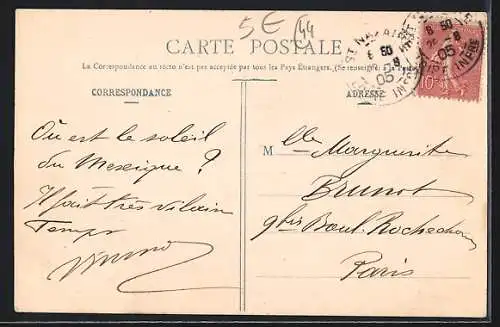 5E (44
CARTE POSTALE
La Correspondance au recto n'est pas acceptée par tous les Pays Étrangers. (Se renseigner à la Poste)
CORRESPONDANCE
ADRESSE
ST NAZAIRE
05
LOIRE INFRE
10c
Où est le soleil
du Mexique ?
Il fait très vilain
Temps
Mlle Marguerite
Brunot
9bis Boul. Rochechou
Paris